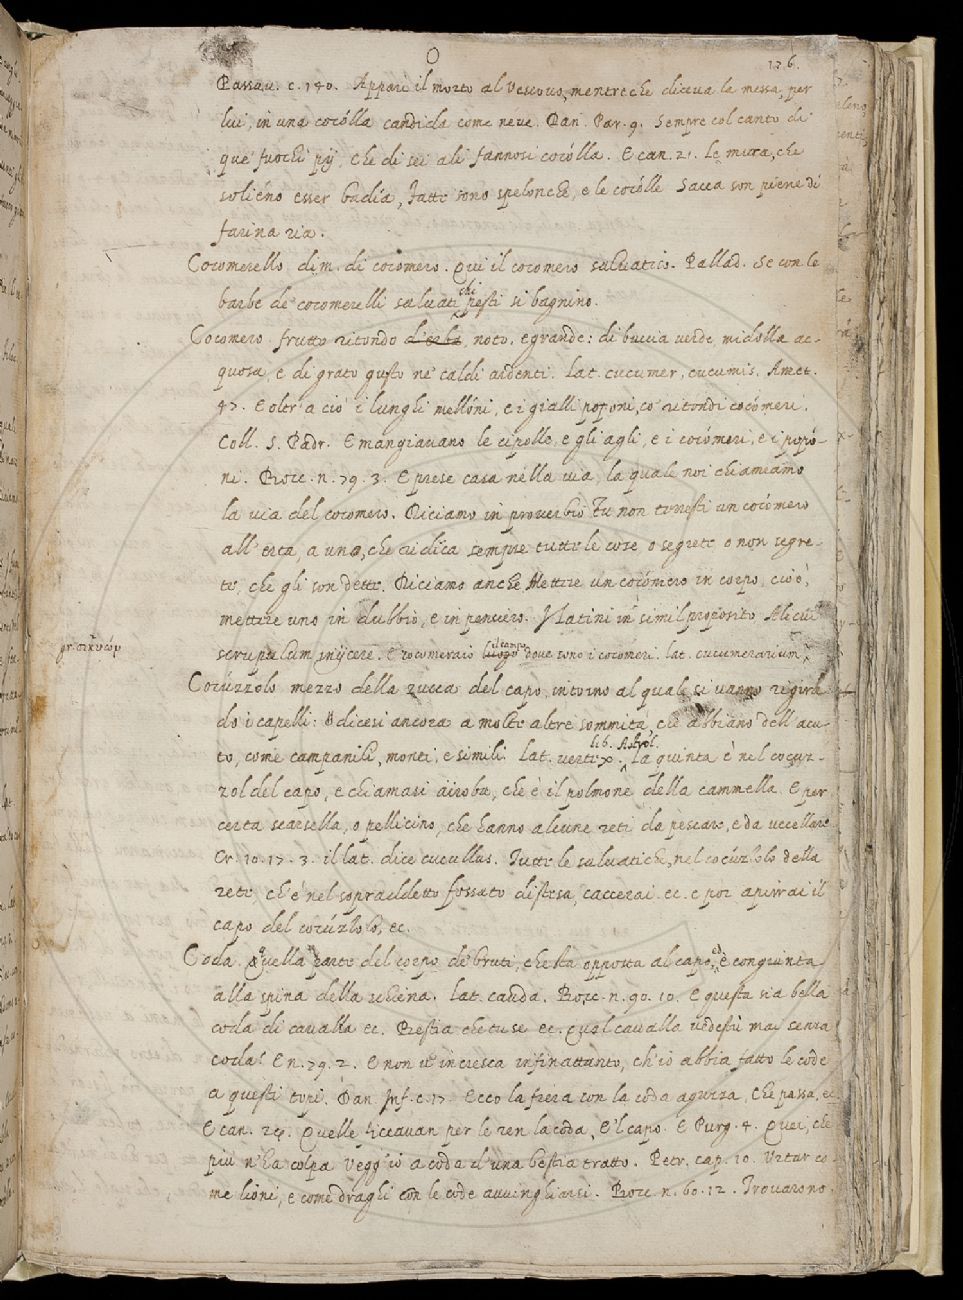 O
126.
Passau. c. 140. Appari il morto al Vescovo, mentreche diceua la messa, per
lui, in una cocólla candida come neve. Dan. Par. 9. Sempre col canto di
que' fuochi pij, che di sei ali fannosi cocólla. E can. 21. Le mura, che
soliéno esser badía, fatte sono spelonche, e le cocólle Sacca son piene di
farina ria.
Cocomerello dim. di cocomero. Qui il cocomero saluatico. Pallad. Se con le
barbe de' cocomerelli saluatichi pesti si bagnino.
Cocomero. frutto ritondo d'erba, noto, e grande: di buccia verde, midolla ac-
quosa, e di grato gusto ne' caldi ardenti. Lat. cucumer, cucumis. Amet.
47. E oltr'a ciò i lunghi mellóni, e i gialli popóni, co' ritondi cocómeri.
Coll. S. Padr. E mangiauano le cipolle, e gli agli, e i cocómeri, e i popó-
ni. Bocc. n. 79. 3. E prese casa nella via, la quale noi chiamiamo
la via del cocomero. Diciamo in proverbio Tu non terresti un cocómero
all'erta, a uno, che ridica sempre tutte le cose, o segrete o non segre-
te, che gli son dette. Diciamo anche Mettere un cocómero in corpo, cioè,
mettere uno in dubbio, e in pensiero. I Latini in simil proposito Alicui
gr. σικυών
scrupulum inijcere. E cocomeraio luogo il campo doue sono i cocómeri. lat. cucumerarium
Cocúzzolo mezzo della zucca del capo, intorno al quale si vanno rigiran-
do i capelli: E dicesi ancora a molte altre sommità, che abbiano dell'acu-
to, come campanili, monti, e simili. Lat. vertex. lib. Astrol. La quinta è nel cocuz-
zol del capo, e chiamasi airoba, che è il polmone della cammella. E per
certa scarsella, o pellicino, che hanno alcune reti da pescare, e da uccellare
Cr. 10. 17. 3. il lat. dice cucullus. Tutte le saluatiche, nel cocúzlolo della
rete, ch'è nel sopraddetto fossato distesa, caccerai. ec. e poi aprirai il
capo del cocúzlolo, ec.
Coda. Quella parte del corpo de' bruti, che sta opposta al capo, ed è congiunta
alla spina della schiena. Lat. cauda. Bocc. n. 90. 10. E questa sia bella
coda di caualla ec. Bestia che tu se' ec. qual caualla vedestù mai senza
coda? E n. 79. 2. E non te incresca infinattanto, ch'io abbia fatto le code
a questi topi. Dan. Inf. c. 17. Ecco la fiera con la coda aguzza, Che passa, ec.
E can. 24. Quelle ficcauan per le ren la coda, E'l capo. E Purg. 4. Quei, che
più n'ha colpa Vegg'io a coda d'una bestia tratto. Petr. cap. 10. Vrtar co-
me lioni, e come draghi con le code auuinghiarsi. Bocc. n. 60. 12. Trouarono